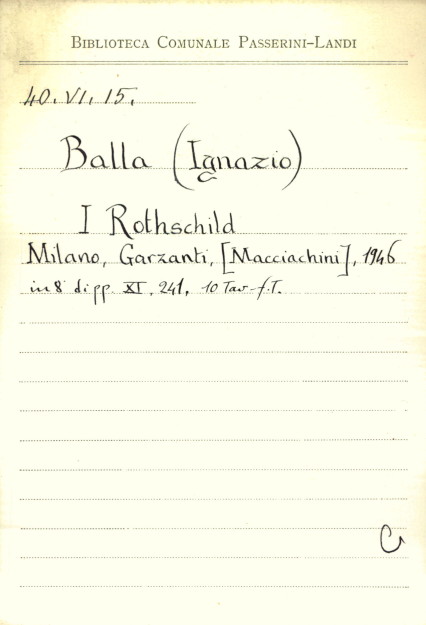 BIBLIOTECA COMUNALE PASSERINI-LANDI
40. VI. 15.
Balla (Ignazio)
I Rothschild
Milano, Garzanti, [Macciachini], 1946
in 8° di pp. XI, 241, 10 Tav. f.T.
C